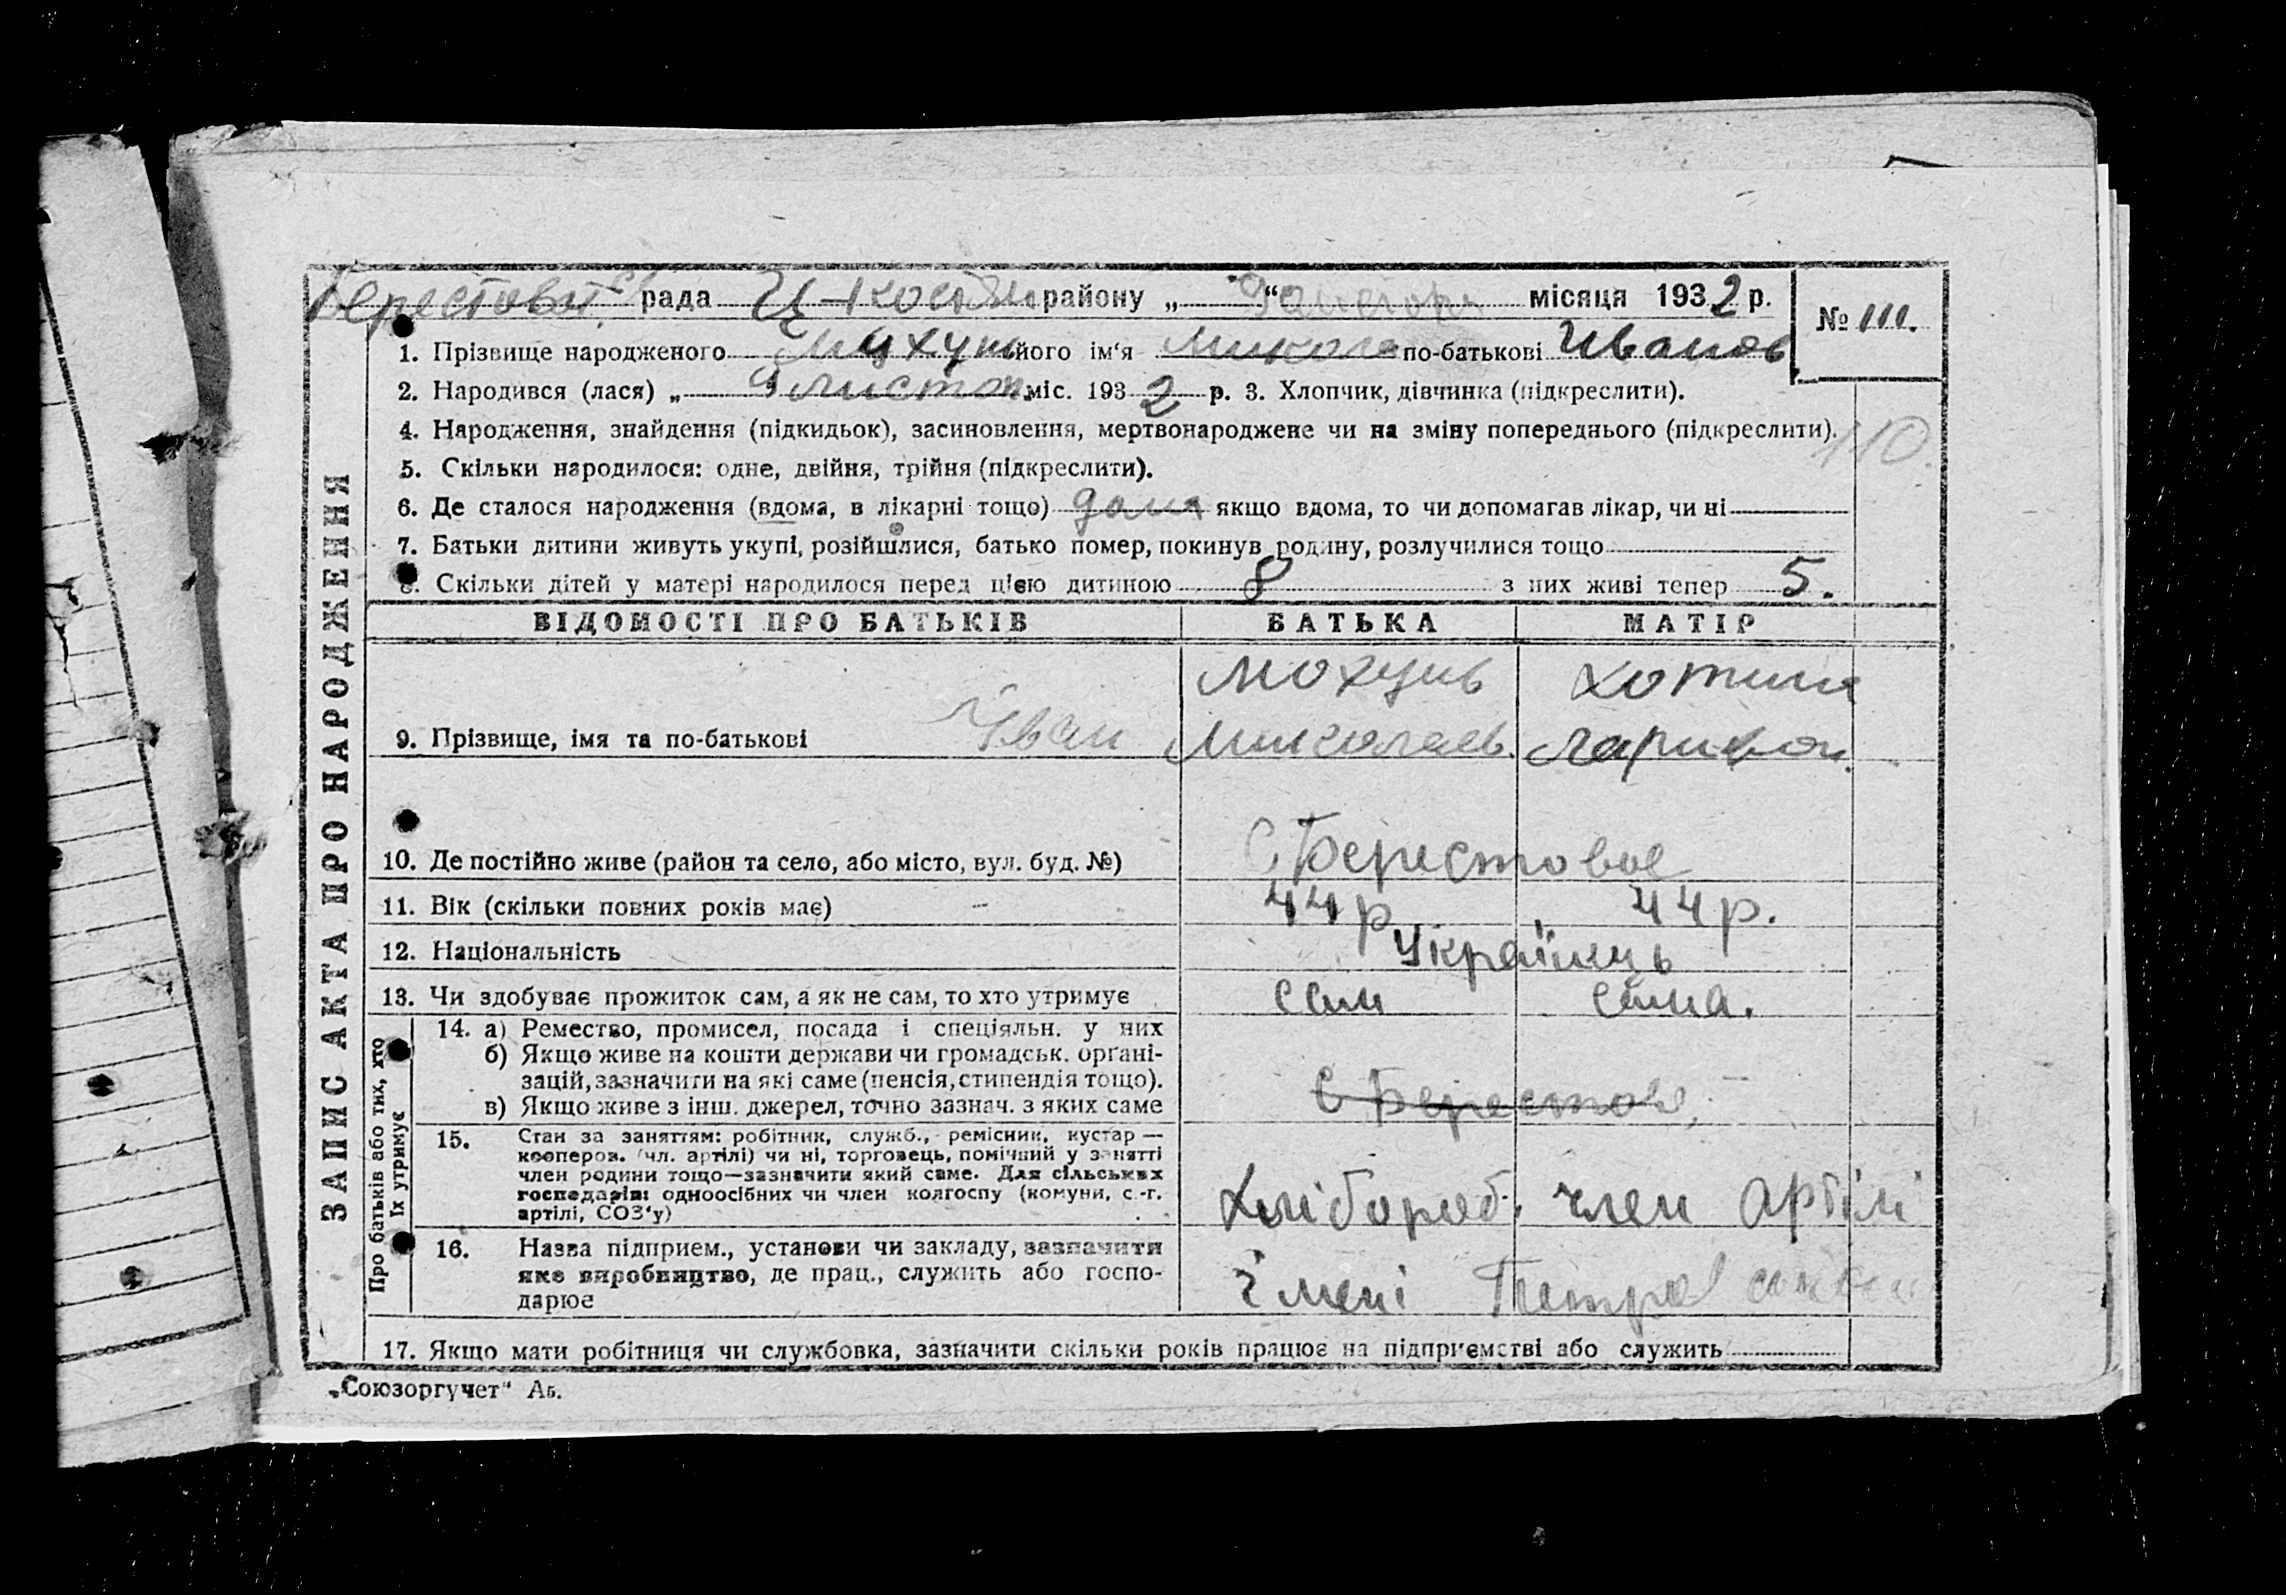 Берестов. рада Ц-Костян району „ “ місяця 1932 р.
№ 111.
1. Прізвище народженого Мухунь його ім‘я Микола по-батькові Иванов
2. Народився (лася) „ 9 листоп. міс. 1932 р. 3. Хлопчик, дівчинка (підкреслити).
4. Народження, знайдення (підкидьок), засиновлення, мертвонароджене чи на зміну попереднього (підкреслити).
110
5. Скільки народилося: одне, двійня, трійня (підкреслити).
6. Де сталося народження (вдома, в лікарні тощо) дома якщо вдома, то чи допомагав лікар, чи ні
7. Батьки дитини живуть укупі, розійшлися, батько помер, покинув родину, розлучилися тощо
8. Скільки дітей у матері народилося перед цією дитиною 8 з них живі тепер 5.
ВІДОМОСТІ ПРО БАТЬКІВ БАТЬКА МАТІР
Мохунь Хотина
9. Прізвище, імя та по-батькові Іван Миколаев. Ларивон.
10. Де постійно живе (район та село, або місто, вул. буд. №) С. Берестовое
11. Вік (скільки повних років має) 44 р 44 р.
12. Національність Українець
13. Чи здобуває прожиток сам, а як не сам, то хто утримує сам сама.
Про батьків або тих, хто їх утримує
14. а) Ремество, промисел, посада і спеціяльн. у них
б) Якщо живе на кошти держави чи громадськ. орґані-
зацій, зазначити на які саме (пенсія, стипендія тощо).
в) Якщо живе з інш. джерел, точно зазнач. з яких саме
С Берестове,
15. Стан за заняттям: робітник, служб., ремісник, кустар —
кооперов. (чл. артілі) чи ні, торговець, помічний у занятті
член родини тощо—зазначити який саме. Для сільських
господарів: одноосібних чи член колгоспу (комуни, с.-г.
артілі, СОЗ‘у)
Хлібороб. член артілі
16. Назва підприєм., установи чи закладу, зазначити
яке виробництво, де прац., служить або госпо-
дарює
імені Петровського
17. Якщо мати робітниця чи службовка, зазначити скільки років працює на підприємстві або служить
ЗАПИС АКТА ПРО НАРОДЖЕННЯ
„Союзоргучет“ А5.